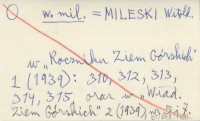 w. mil. = MILESKI Witold.
w „Roczniku Ziem Górskich"
1 (1939): 310, 312, 313,
314, 315 oraz w „Wiad.
Ziem Górskich" 2 (1939), nr